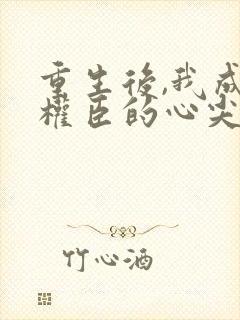 重生後,我成
權臣的心尖
竹心酒